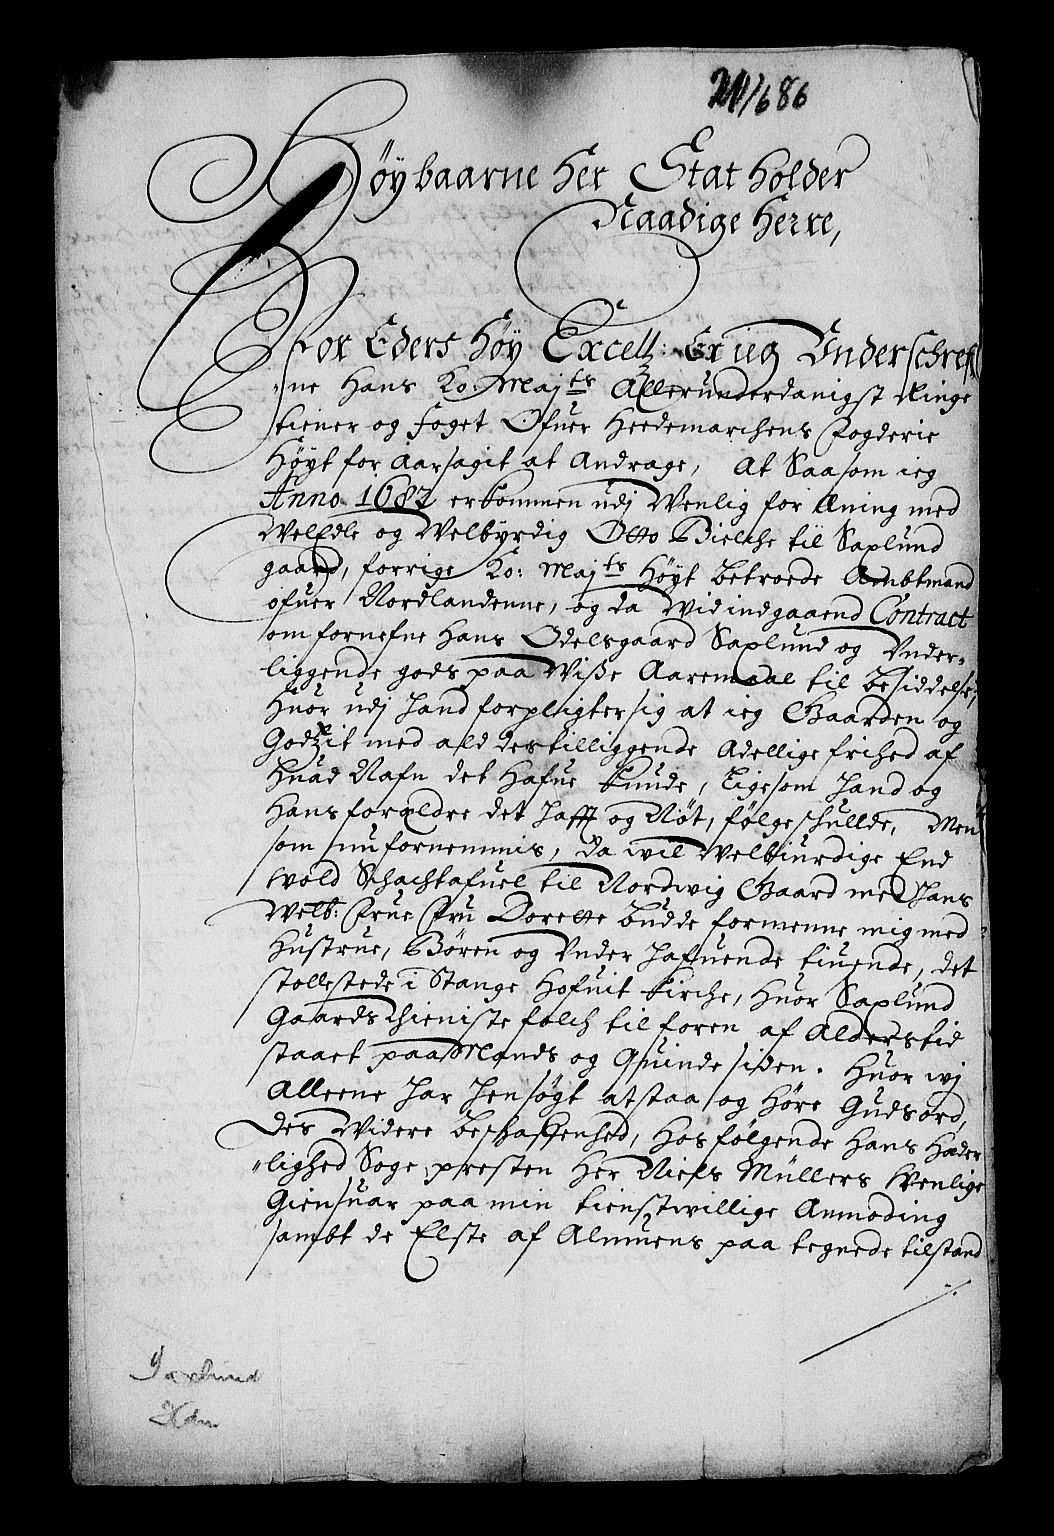 1686
Høybaarne Her Stat holder
Naadige Herre,
For Eders Høy Excell: Er ieg Underschref
"ne Hans Ko: Majts Allerunderdanigst Ringe
tiener og foget Ofuer Heedemarchens fogderie
Høyt for Aarsagit at Andrage, At Saasom ieg
Anno 1682 erkommen udj Venlig for Æning med
WelEdle og Welbyrdig Otto Bielche til Saxlund
gaard, forrige Ko: Majts Høyt betroede Ambtmand
ofuer Nordlandenne, og da Wid indgaaend Contract
om fornefne Hans Odelsgaard Saxlund og Under=
liggende gods paa Wiße Aaremaal til besiddelse,
Huor udj Hand forpligter sig at ieg Gaarden og
Godzit med ald des tilliggende Adellige frihed af
Huad Nafn det Hafue Kunde, Ligesom Hand og
Hans forældre det Hafft og Nøt, følge skullde, Men
som nu fornemmis, da wil Welbiurdige End
wold Schachtafuel til Nordwig Gaard med Hans
Welb: Frue Fru Dorette Budde formenne mig med
Hustrue, Børen og Under Hafuende tiuende, det
stollestede i Stange Hofuit Kirche, Huor Saxlund
Gaards Thieniste folch til foren af Alders tid
staaet paa Mands og Quinde siden. Huor wj
Alleene Har Hensøgt at staa og Høre Guds ord,
Des Widere beskaffenhed, Hos følgende Hans Hæder
"lighed Sogepresten Her Niels Müllers Wenlige
Giensuar paa min tienstwillige Anmoding
sambt de Elste af Almuens paa tegnede tilstand
Saxlund
Hdm